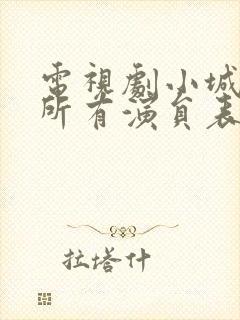 電視劇小城
所有演員表
拉塔什